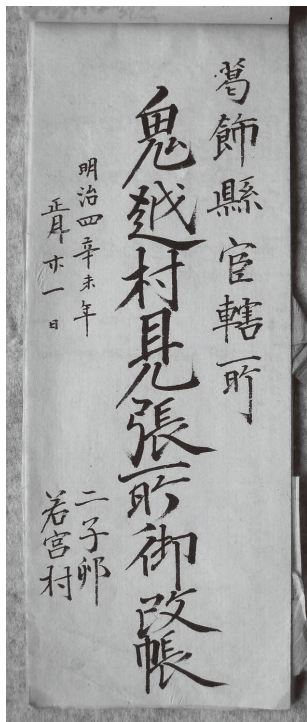 葛飾縣官轄所
鬼越村見張所御改帳
明治四辛未年
正月廿一日
二子邨
若宮村